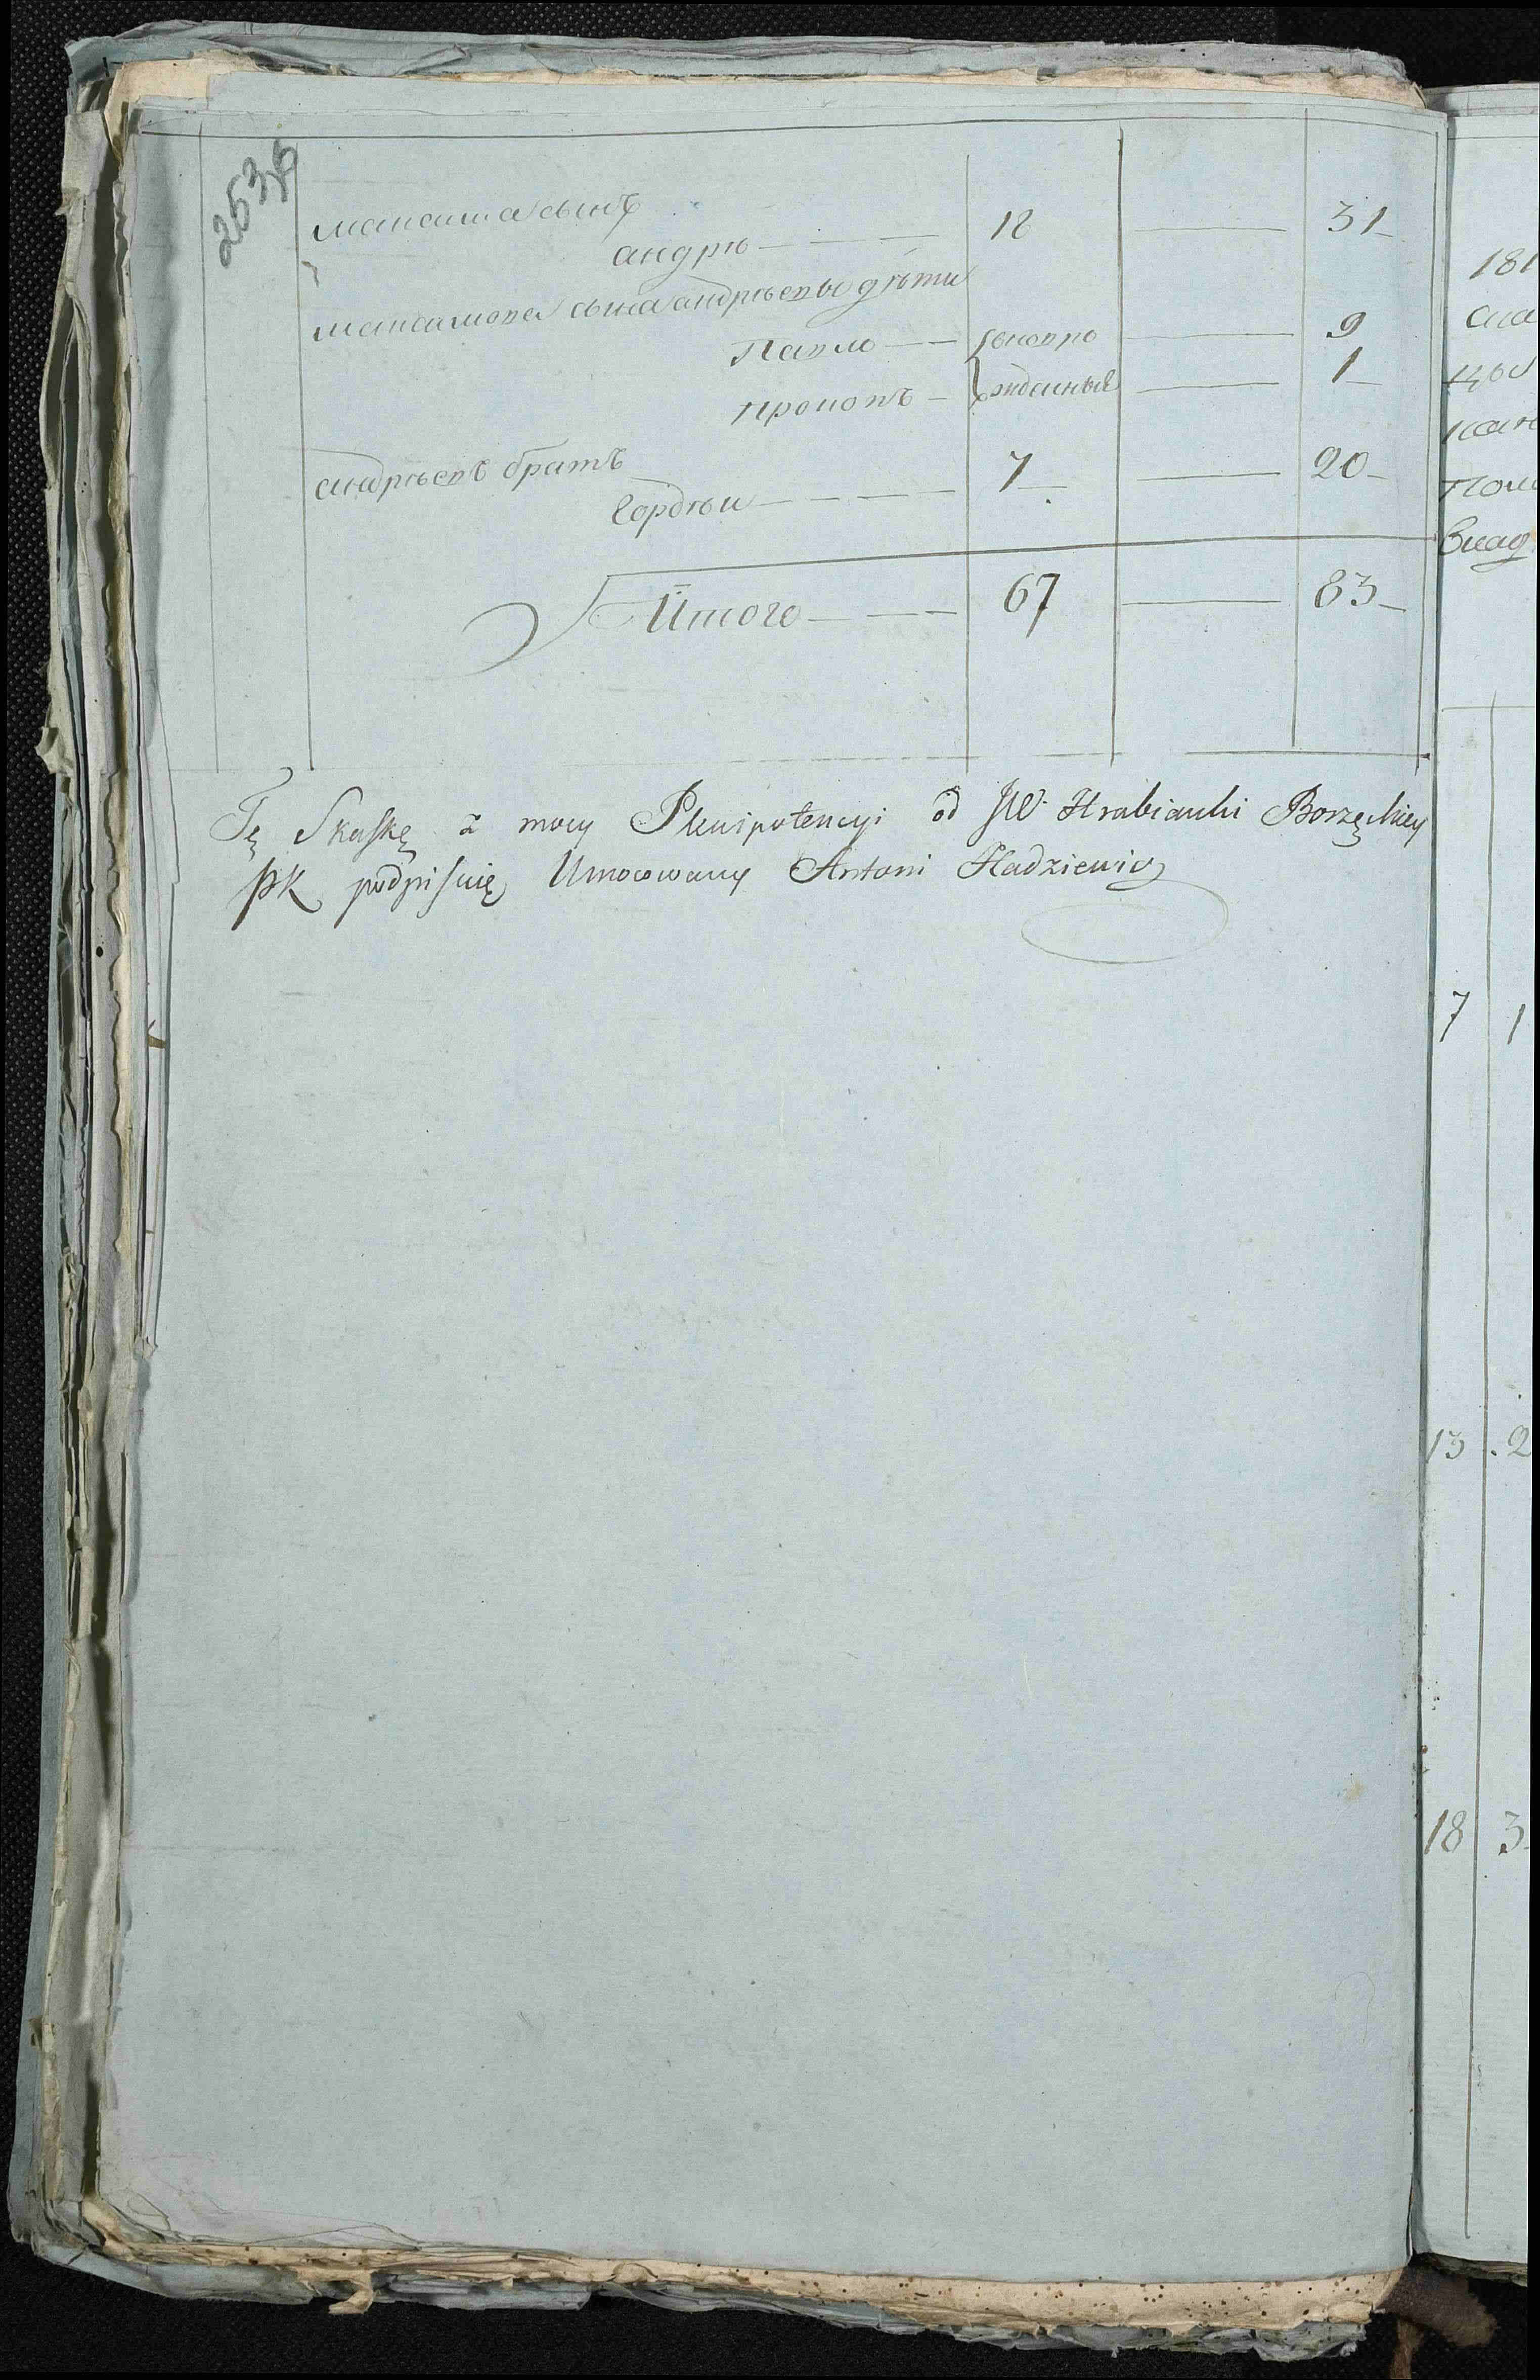 253 об
максима сынъ
андрю — — — 18 — 31
максимова сына андрѣевы дѣти
Павло — — новоро — 9
прокопъ — жденныя — 1
андрѣевъ братъ
Гордѣи — — — — 7 — 20
Итого — — — 67 — 83
Tę Skaskę z mocy Plenipotencyi od JW Hrabianki Borzęckiey
podpisuię Umocowany Antoni Hadziewicz
181
7 1
13 2
18 3